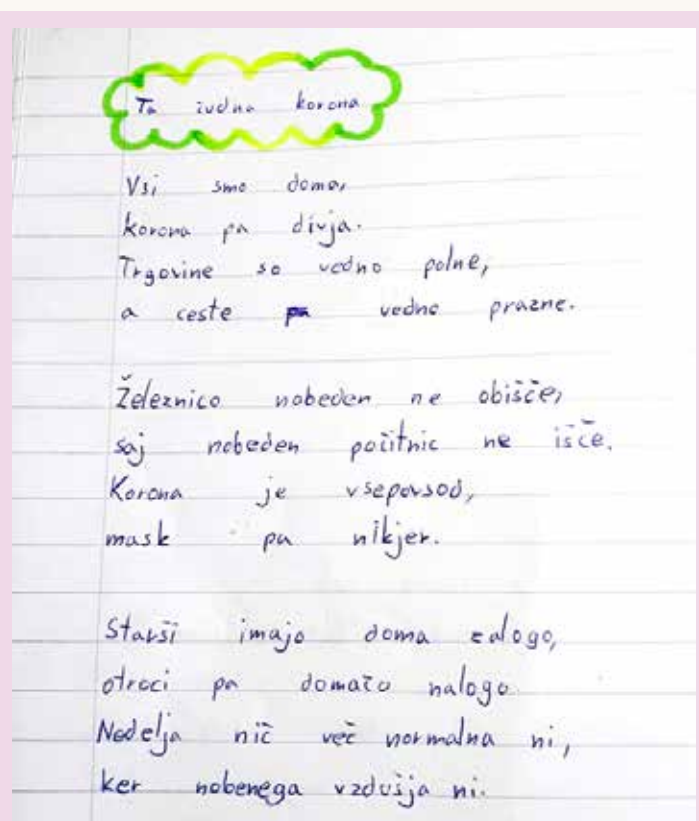 Ta čudna korona
Vsi smo doma,
korona pa divja.
Trgovine so vedno polne,
a ceste pa vedno prazne.
Železnico nobeden ne obišče,
saj nobeden počitnic ne išče.
Korona je vsepovsod,
mask pa nikjer.
Starši imajo doma zalogo,
otroci pa domačo nalogo.
Nedelja nič več normalna ni,
ker nobenega vzdušja ni.